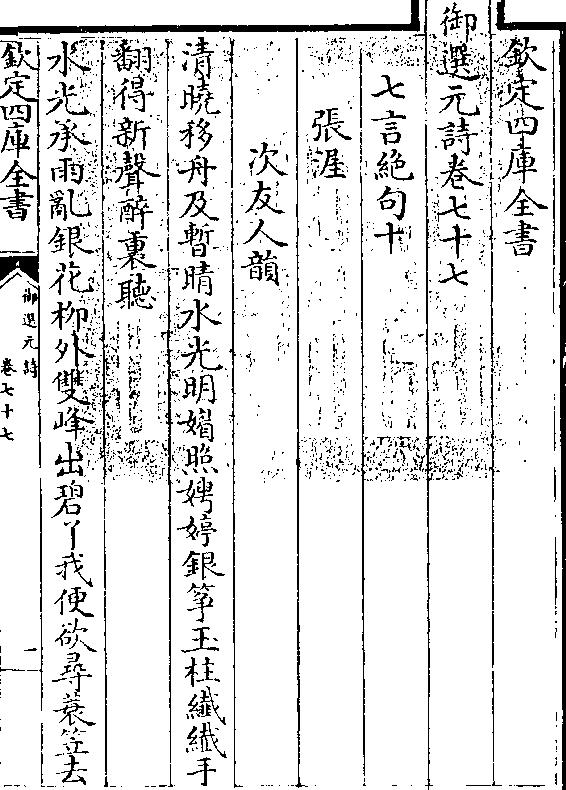 欽定四庫全書
御選元詩卷七十七
七言絕句十
張渥
次友人韻
清曉移舟及暫晴水光明媚照娉婷銀箏玉柱纖纖手
翻得新聲醉裏聽
水光承雨亂銀花柳外雙峰出碧丫我便欲尋蓑笠去
欽定四庫全書
御選元詩
卷七十七
一